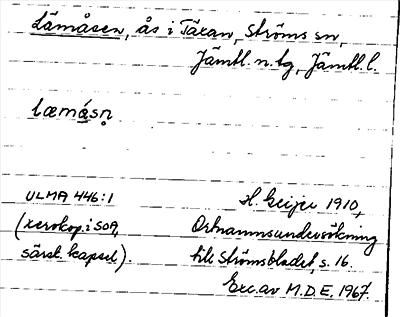 Lämåsen, ås i Täxan, Ströms sn,
Jämtl. n. bg, Jämtl. l.
læmásn̥
ULMA 446:1
(xerokop. i SOA,
särsk. kapsel).
H. Geijer 1910,
Ortnamnsundersökning
till Strömsbladet, s. 16.
Exc. av M.D.E. 1967.